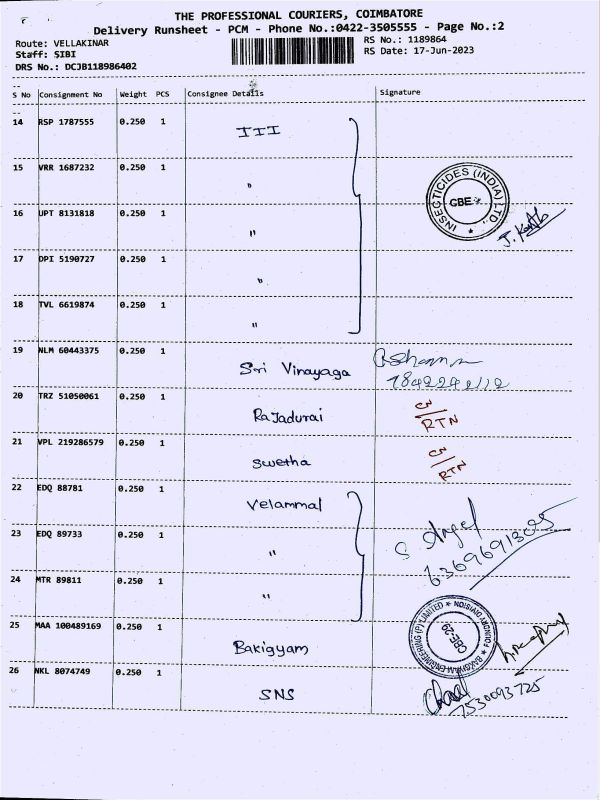 THE PROFESSIONAL COURIERS, COIMBATORE
Delivery Runsheet - PCM - Phone No.:0422-3505555 - Page No.:2
Route: VELLAKINAR RS No.: 1189864
Staff: SIBI RS Date: 17-Jun-2023
DRS No.: DCJB118986402
S No Consignment No Weight PCS Consignee Details Signature
14 RSP 1787555 0.250 1 III
15 VRR 1687232 0.250 1 "
INSECTICIDES (INDIA) LTD.
CBE
16 UPT 8131818 0.250 1 "
17 DPI 5190727 0.250 1 "
18 TVL 6619874 0.250 1 "
19 NLM 60443375 0.250 1 Sri Vinayaga
20 TRZ 51050061 0.250 1 RaJadurai RTN
21 VPL 219286579 0.250 1 Swetha RTN
22 EDQ 88781 0.250 1 Velammal
23 EDQ 89733 0.250 1 " S Angel
6369691305
24 MTR 89811 0.250 1 "
25 MAA 100489169 0.250 1 Bakigyam
ENGINEERING (P) LIMITED * FOUNDRY DIVISION *
CBE-29
26 NKL 8074749 0.250 1 SNS
7530093725